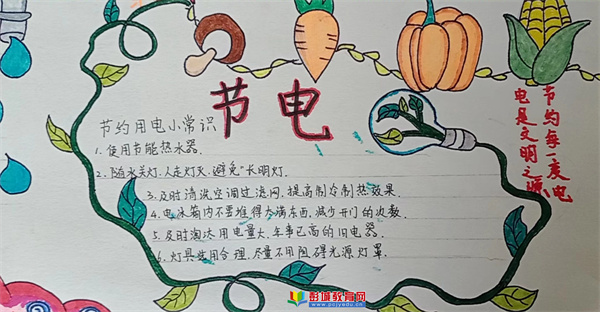 节电
节约用电小常识
1. 使用节能热水器.
2. 随水关灯.人走灯灭.避免"长明灯.
3. 及时清洗空调过滤网,提高制冷制热效果.
4. 电冰箱内不要堆得太满东西,减少开门的次数.
5. 及时淘汰用电量大.年事已高的旧电器.
6. 灯具选用合理.尽量不用阻碍光源灯罩.
节约每一度电
电是文明之源
彭城教育网
www.pcjyedu.cn